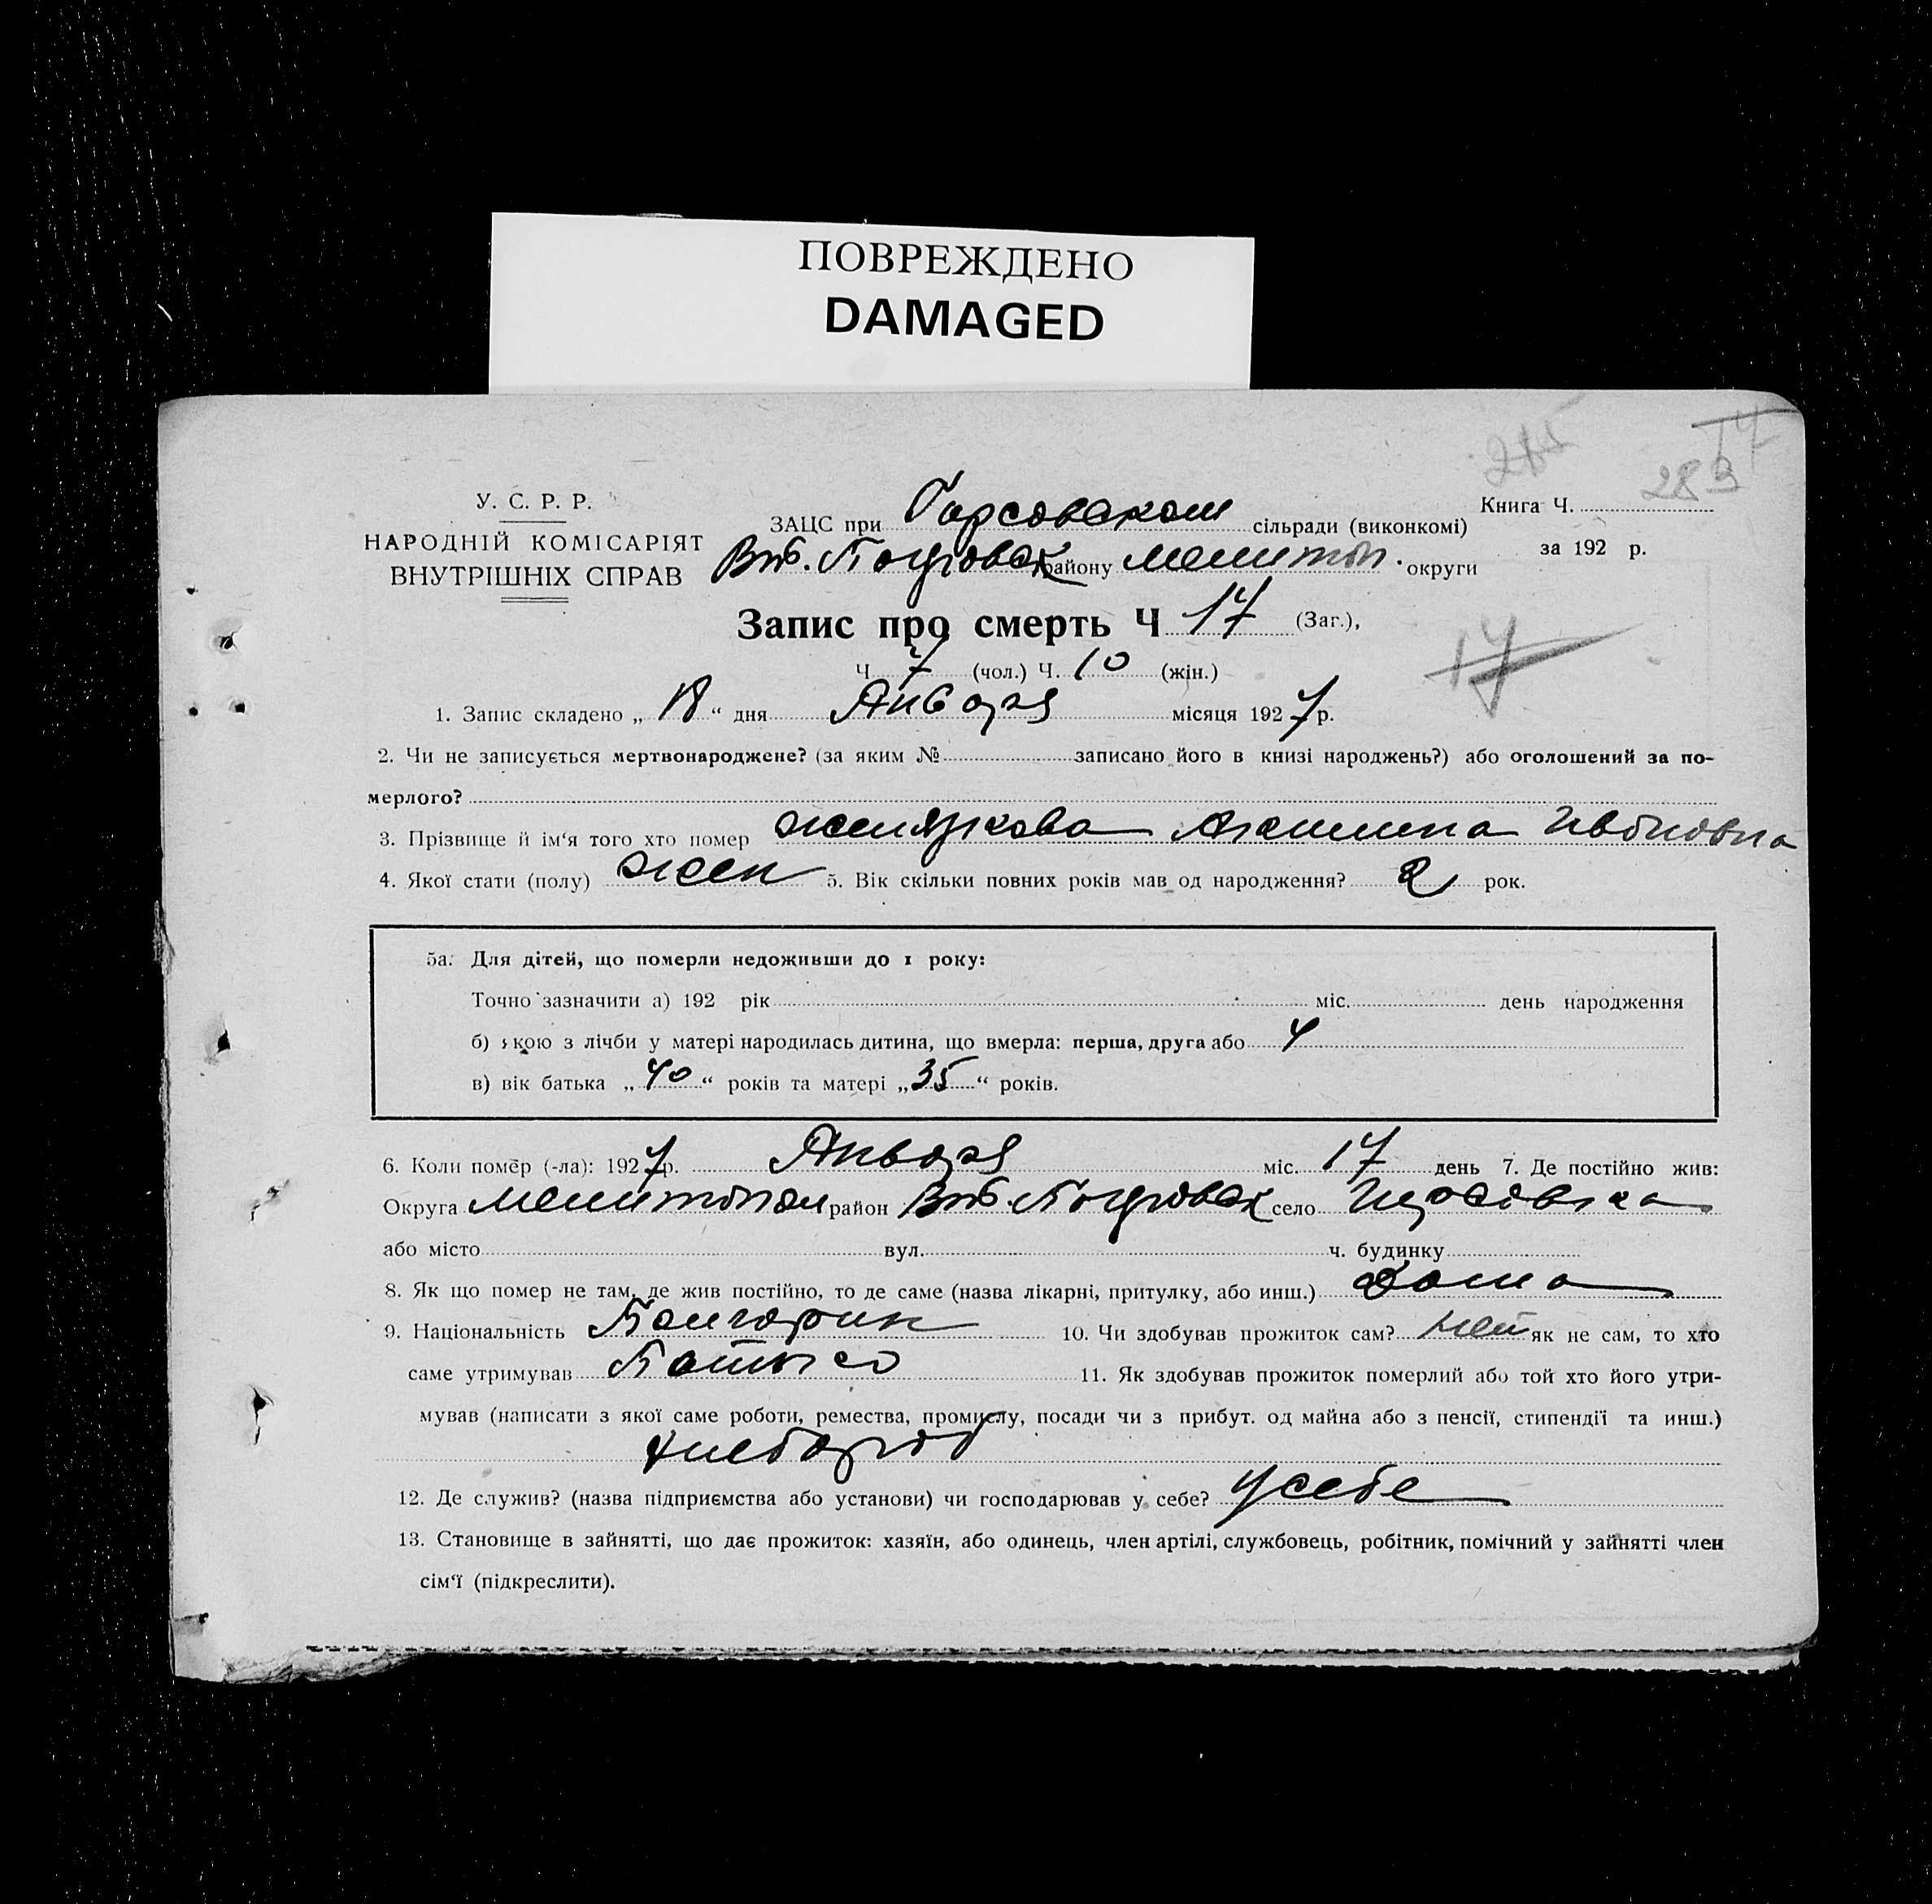 ПОВРЕЖДЕНО
DAMAGED
285
17
283
У. С. Р. Р.
НАРОДНІЙ КОМІСАРІЯТ
ВНУТРІШНІХ СПРАВ
ЗАЦС при сільради (виконкомі)
району Мелитоп. округи
Книга Ч.
за 192 р.
Запис про смерть Ч 17 (Заг.),
17
Ч 7 (чол.) Ч. 10 (жін.)
1. Запис складено „ 18 “ дня Января місяця 1927 р.
2. Чи не записується мертвонароджене? (за яким № записано його в книзі народжень?) або оголошений за по-
мерлого?
3. Прізвище й ім‘я того хто помер Желязкова Ивановна
4. Якої стати (полу) жен 5. Вік скільки повних років мав од народження? 2 рок.
5а. Для дітей, що померли недоживши до 1 року:
Точно зазначити а) 192 рік міс. день народження
б) якою з лічби у матері народилась дитина, що вмерла: перша, друга або 4
в) вік батька „ 40 “ років та матері „ 35 “ років.
6. Коли помер (-ла): 1927 р. Января міс. 17 день 7. Де постійно жив:
Округа Мелитопол район село
або місто вул. ч. будинку
8. Як що помер не там, де жив постійно, то де саме (назва лікарні, притулку, або инш.) Дома
9. Національність Болгарин 10. Чи здобував прожиток сам? нет як не сам, то хто
саме утримував Батько 11. Як здобував прожиток померлий або той хто його утри-
мував (написати з якої саме роботи, ремества, промислу, посади чи з прибут. од майна або з пенсії, стипендії та инш.)
хлебороб
12. Де служив? (назва підприємства або установи) чи господарював у себе? у себе
13. Становище в зайнятті, що дає прожиток: хазяїн, або одинець, член артілі, службовець, робітник, помічний у зайнятті член
сім‘ї (підкреслити).